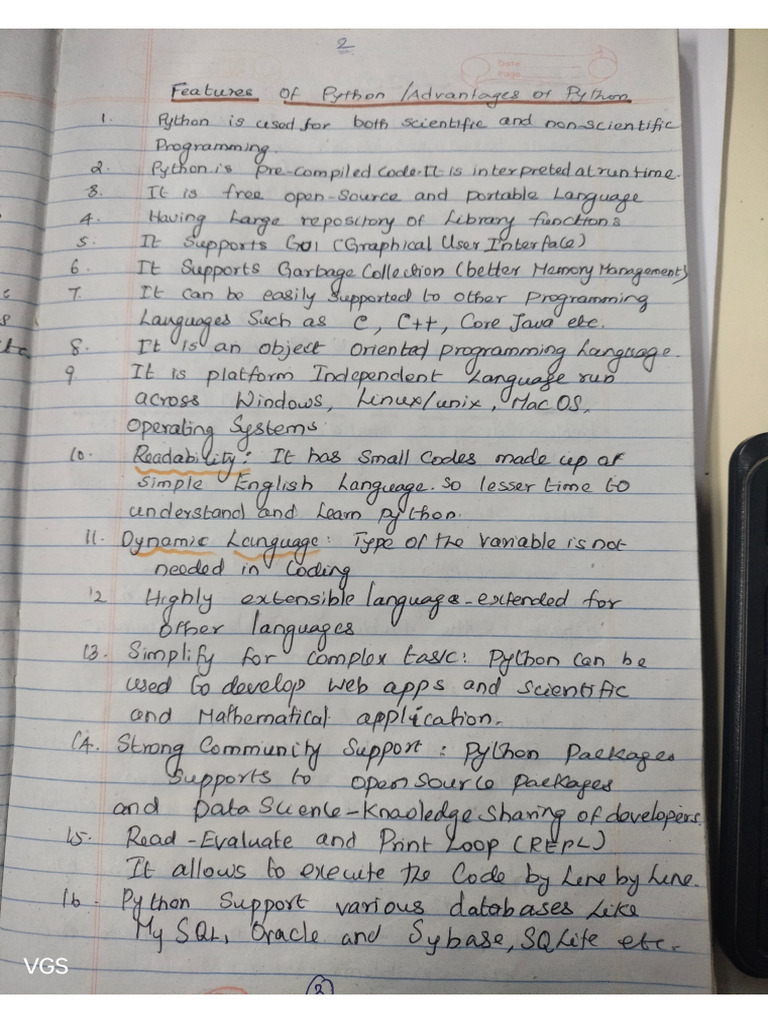 2
Date
Page
Features Of Python /Advantages of Python
1. Python is used for both scientific and non-scientific
Programming.
2. Python is pre-compiled code. It is interpreted at run time.
3. It is free open-source and portable Language
4. Having Large repository of Library functions
5. It Supports GUI (Graphical User Interface)
6. It Supports Garbage Collection (better Memory Management)
7. It can be easily supported to other Programming
Languages Such as C, C++, Core Java etc.
8. It is an object oriented programming Language.
9 It is platform Independent Language run
across Windows, Linux/unix, Mac OS,
Operating Systems.
10. Readability: It has small codes made up of
simple English Language. So lesser time to
understand and Learn Python.
11. Dynamic Language: Type of the variable is not
needed in Coding
12 Highly extensible language - extended for
other languages
13. Simplify for complex task: Python can be
used to develop web apps and scientific
and Mathematical application.
14. Strong Community Support: Python Packages
Supports to open source packages
and Data Science - Knowledge Sharing of developers.
15. Read - Evaluate and Print Loop (REPL)
It allows to execute the Code by Line by Line.
16. Python Support various databases Like
My SQL, Oracle and Sybase, SQLite etc.
VGS